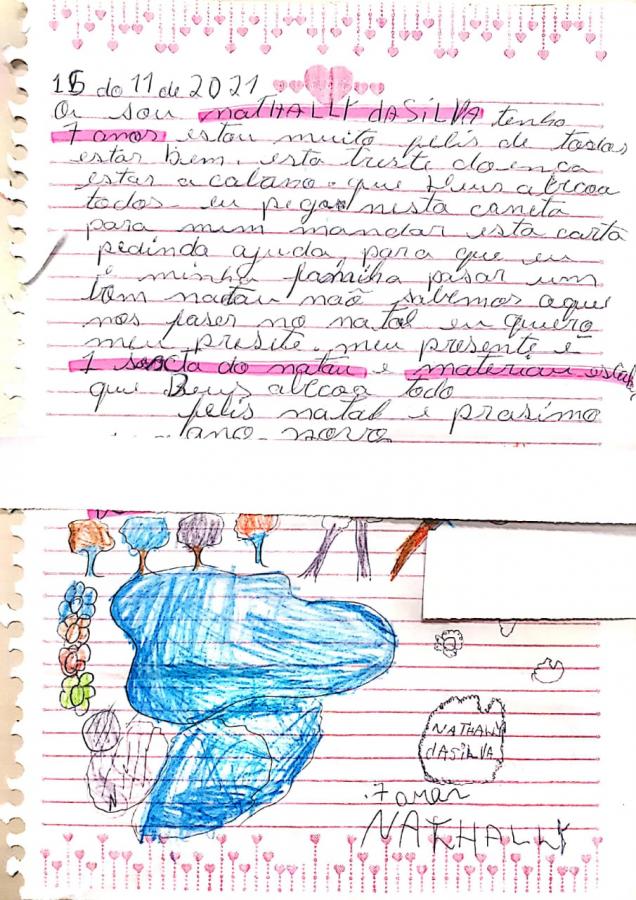 15 do 11 de 2021
Oi sou NATHALLY dASiLVA tenho
7 anos estou muito felis de todos
estar bem. esta treste doença
estar acabano. que Deus abecoa
todos. eu pegar nesta caneta
para mim mandar esta carta
pedindo ajuda, para que eu
i minha familha pasar um
bom natau não sabemos oque
nos faser no natal eu quero
meu presite. meu presente é
1 do natau e materiau
que Deus abecoa todo
felis natal e prasimo
ano novo
NATHALLY
dASiLVA
7 anos
NATHALLY
N